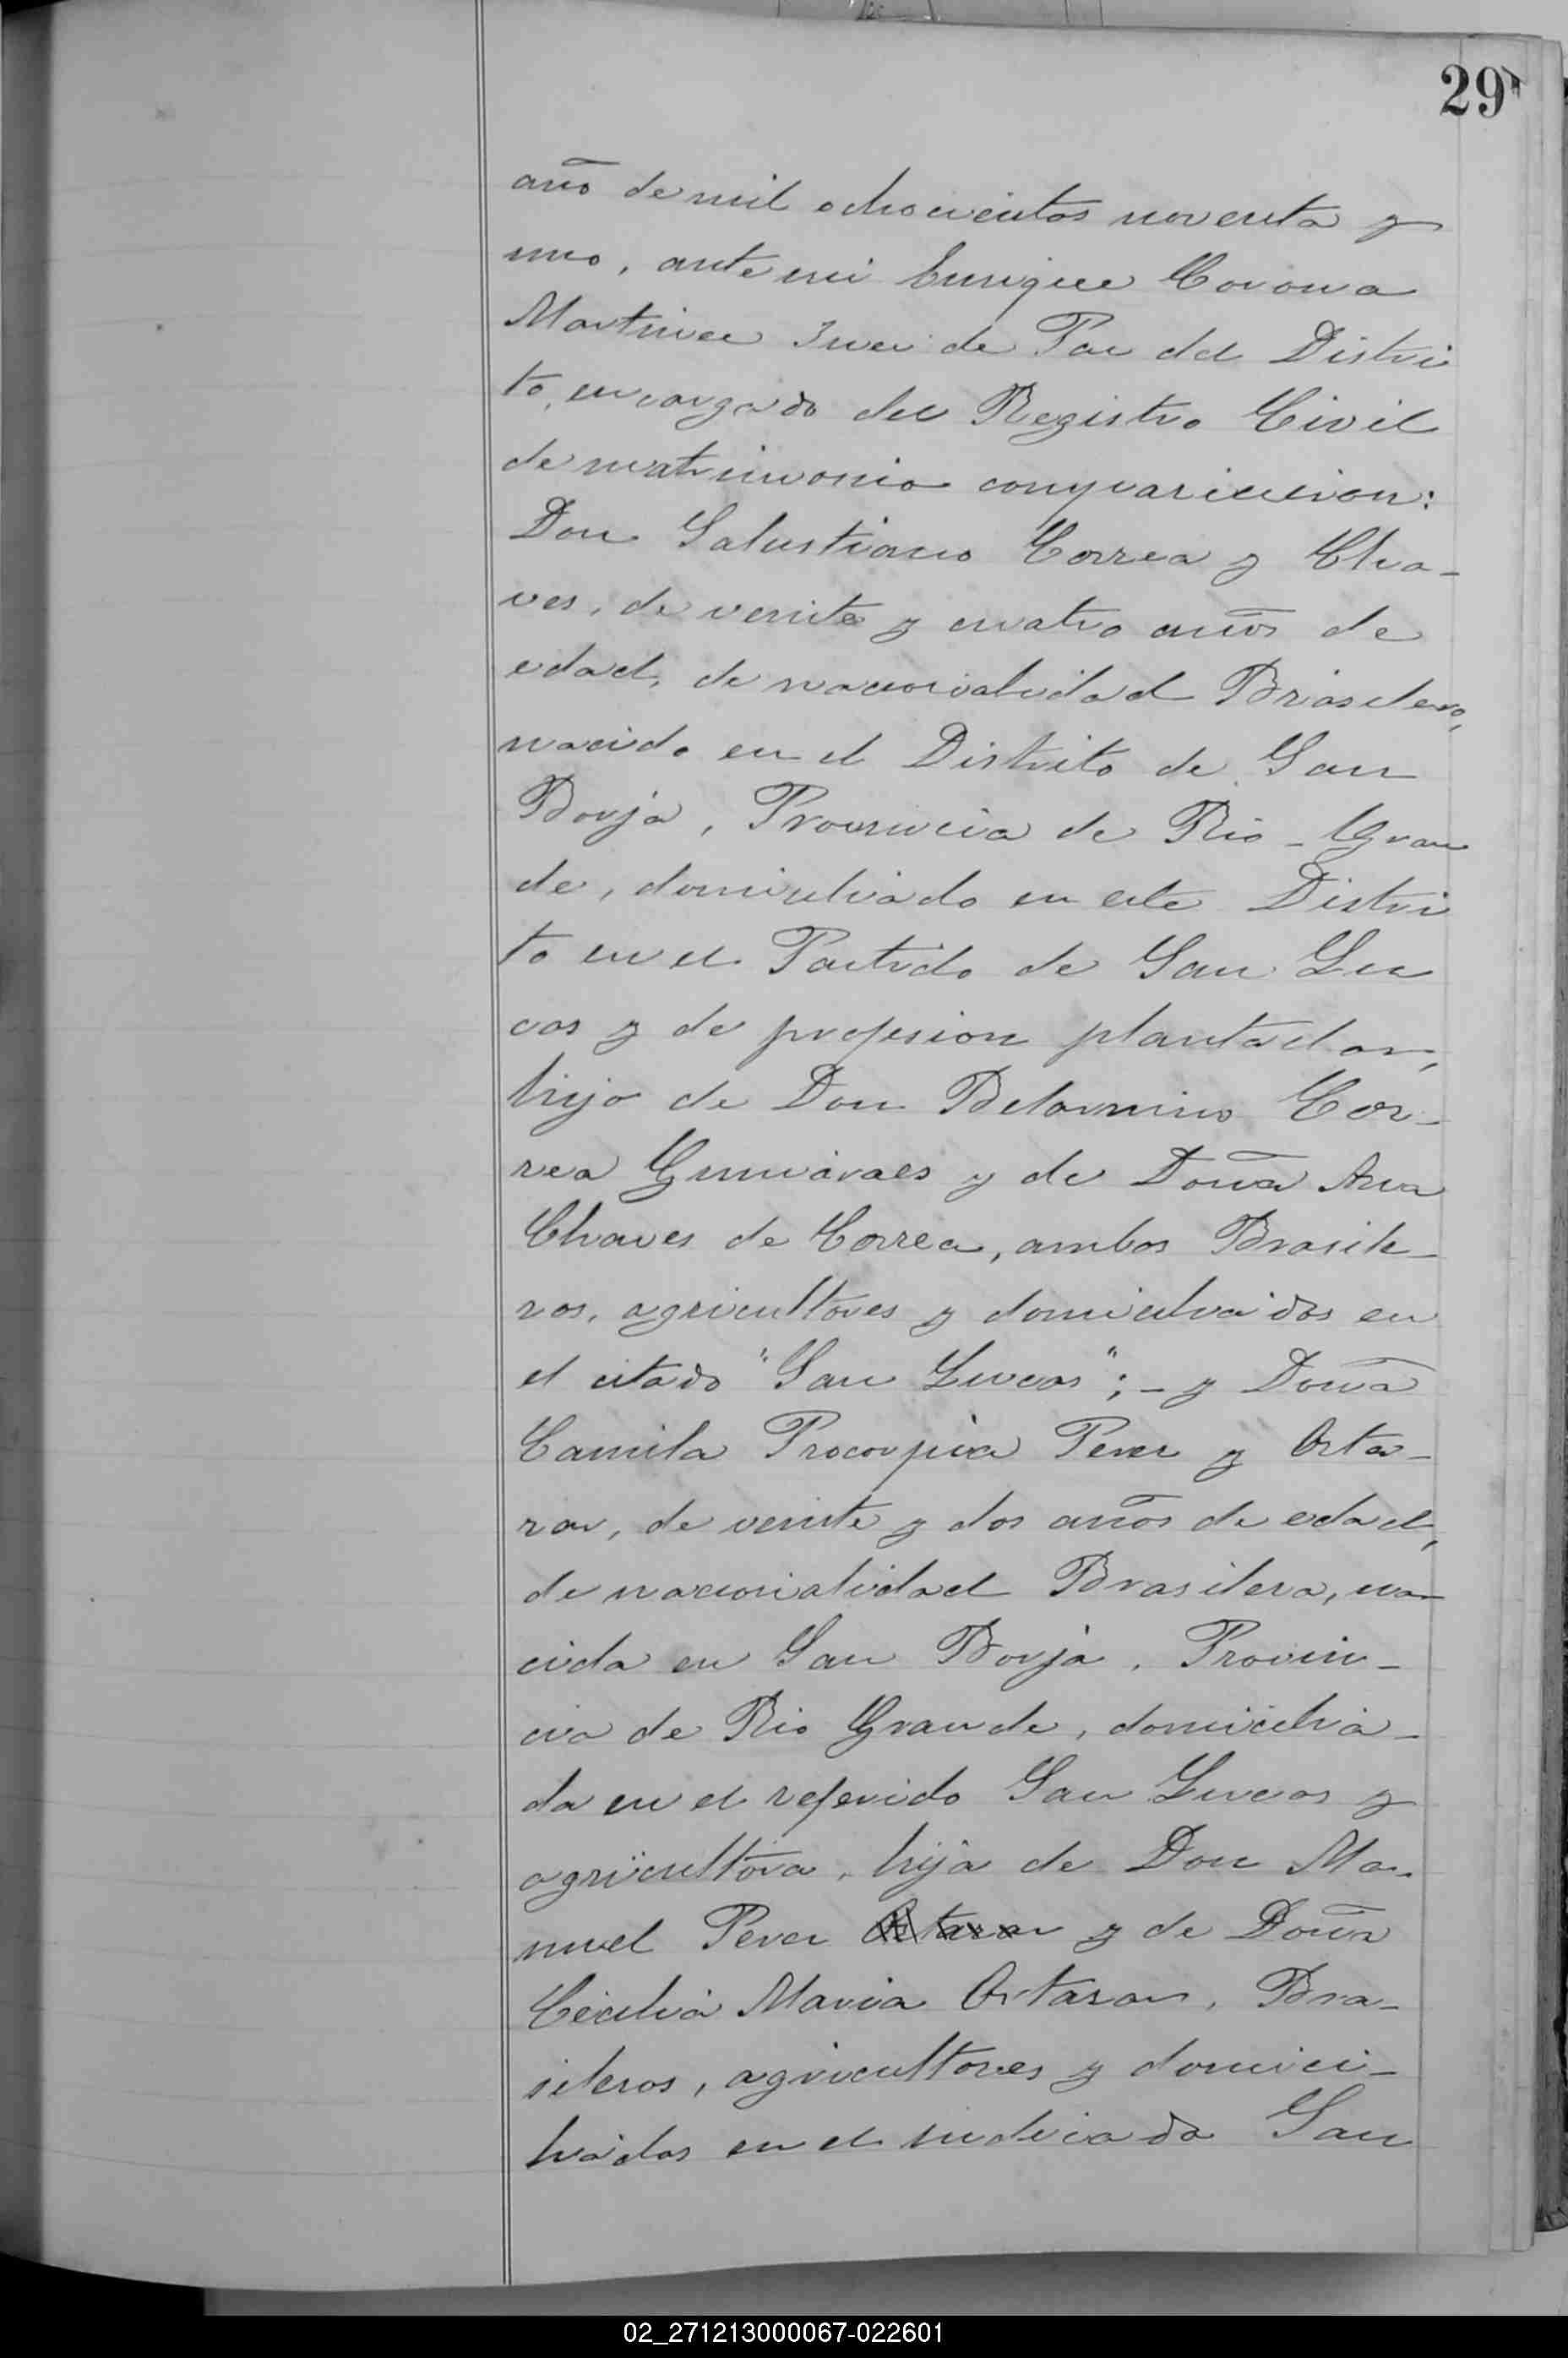 29
año de mil ochocientos noventa y
uno, ante mi Enrique Corona
Martinez Juez de Paz del Distri
to, encargado del Registro Civil
de matrimonio comparicieron:
Don Salustiano Correa y Cha-
ves, de veinte y cuatro años de
edad, de nacionalidad Brasilero,
nacido en el Distrito de San
Borja, Provincia de Rio-Gran
de, domiciliado en este Distri
to en el Partido de San Lu
cas y de profesion plantador,
hijo de Don Belarmino Cor-
rea Gumiaraes y de Doña Ana
Chaves de Correa, ambos Brasile-
ros, agricultores y domiciliados en
el citado "San Lucas"; - y Doña
Camila Procorpia Perez y Orta-
zar, de veinte y dos años de edad,
de nacionalidad Brasilera, na-
cida en San Borja, Provin-
cia de Rio Grande, domicilia-
da en el referido San Lucas y
agricultora, hija de Don Ma-
nuel Perez Ortazar y de Doña
Cecilia Maria Ortasar, Bra-
sileros, agricultores y domici-
liados en el indicado San
02_271213000067-022601